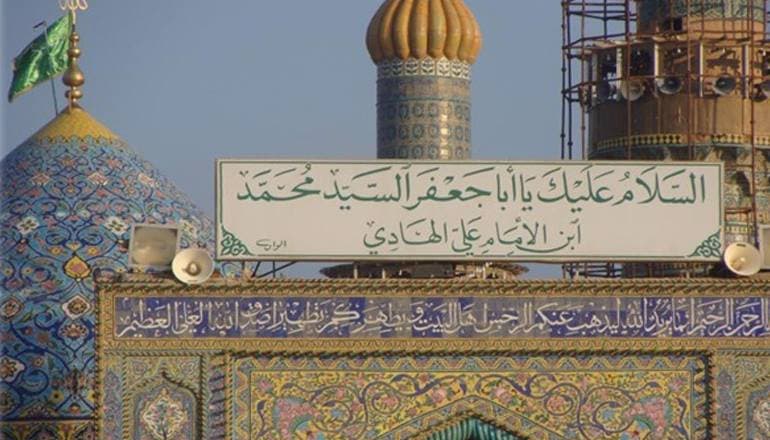 السَّلَامُ عَلَيْكَ يَا أَبَا جَعْفَرٍ ٱلسَّيِّدِ مُحَمَّدٍ
ٱبْنِ الْإِمَامِ عَلِيٍّ الْهَادِي
الرحمن الرحيم إنما يريد الله ليذهب عنكم الرجس أهل البيت ويطهركم تطهيرا صدق الله العلي العظيم